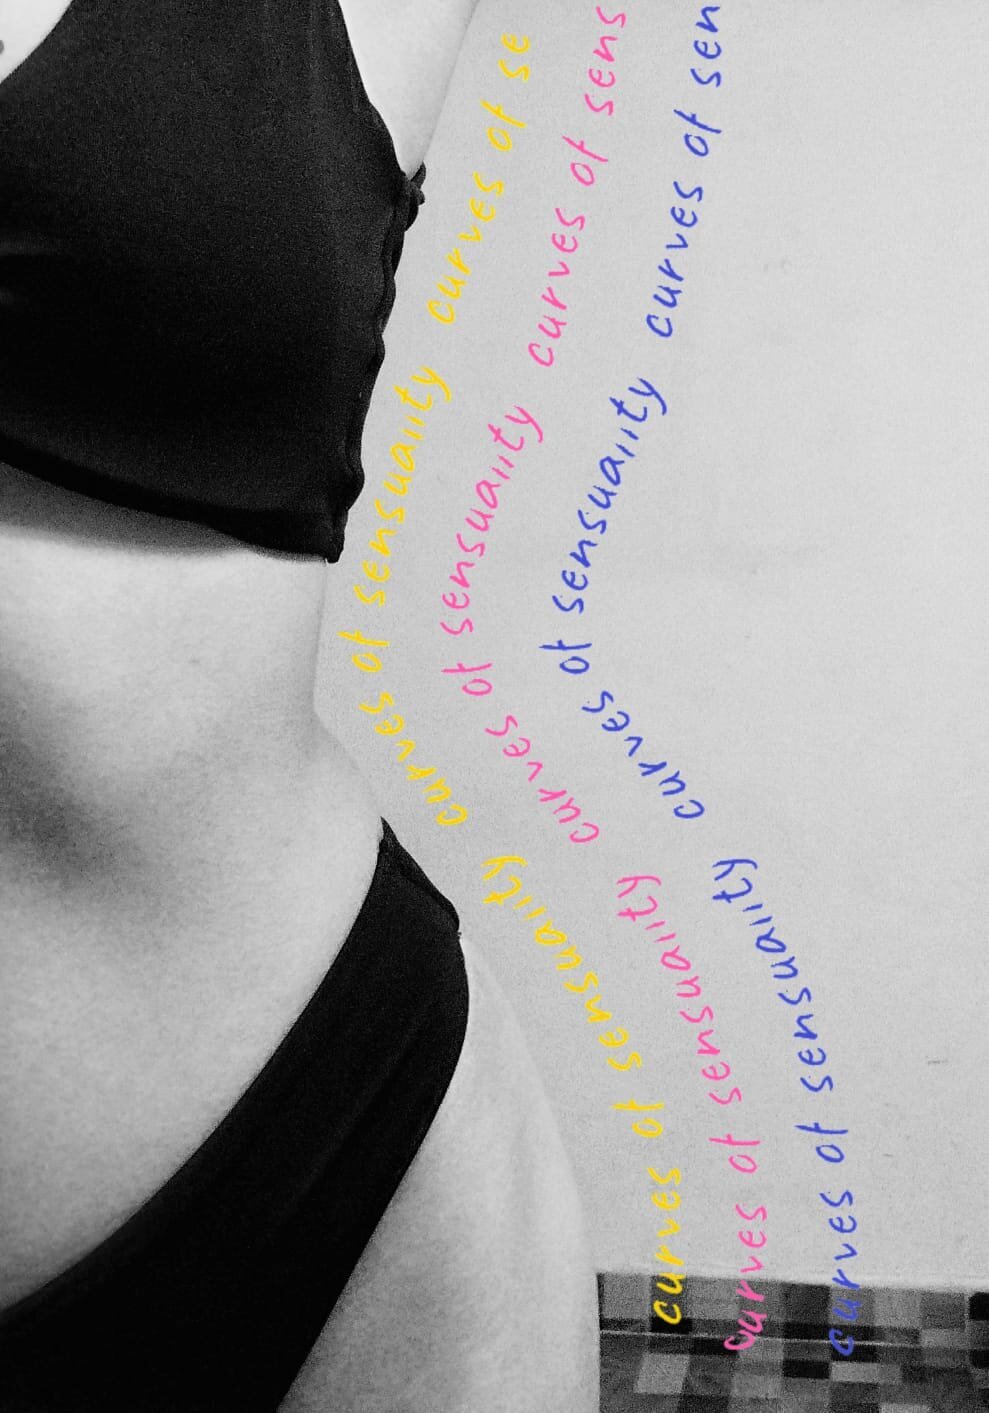 curves of sensuality curves of sensuality curves of se
curves of sensuality curves of sensuality curves of sens
curves of sensuality curves of sensuality curves of sen